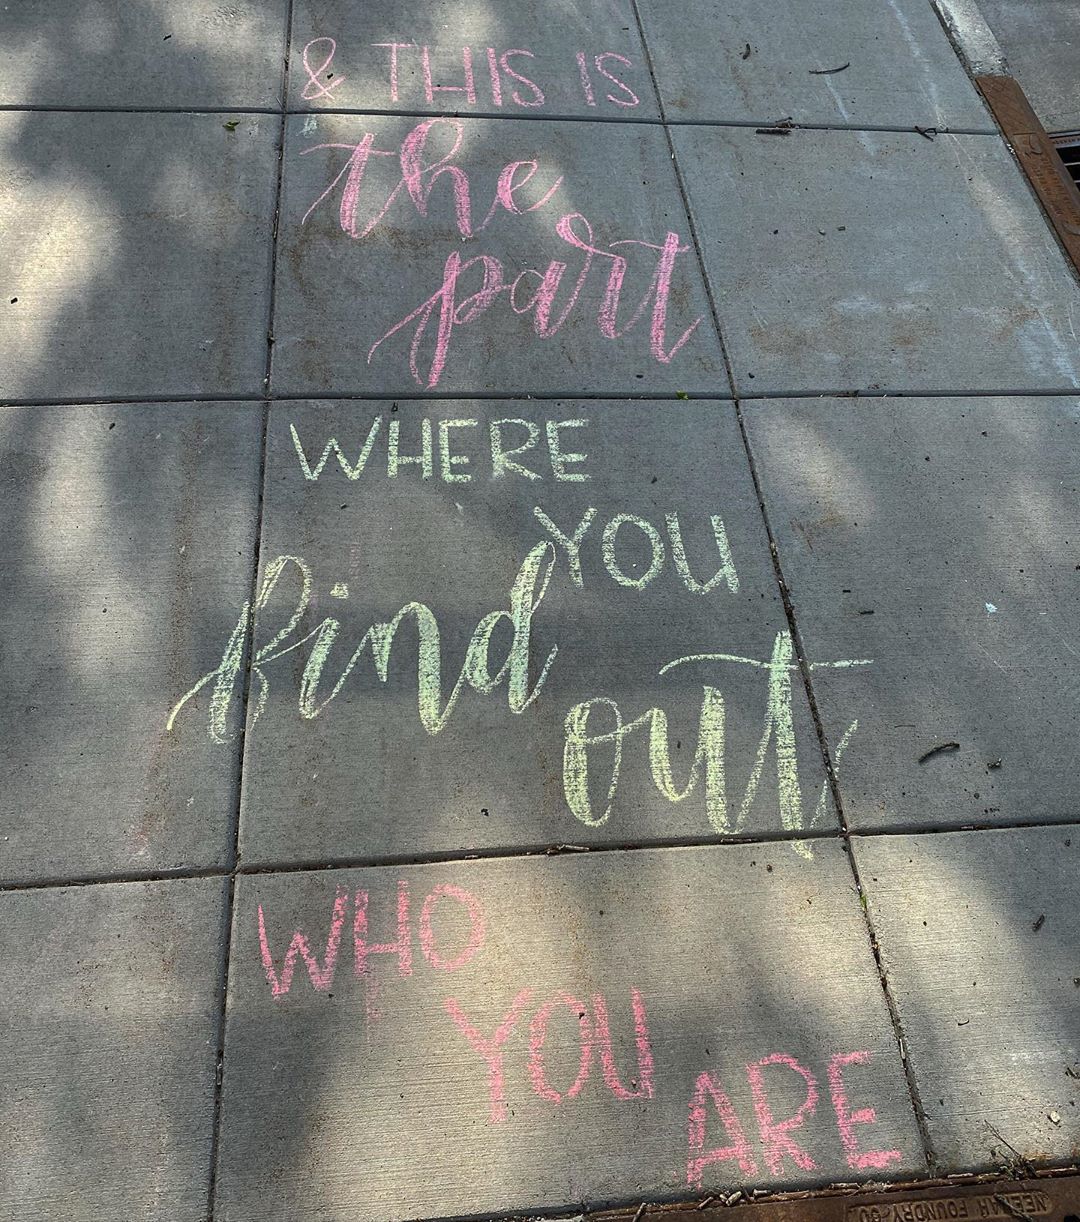 & THIS IS
the
part
WHERE
YOU
find
out
WHO
YOU
ARE
NEENAH FOUNDRY CO